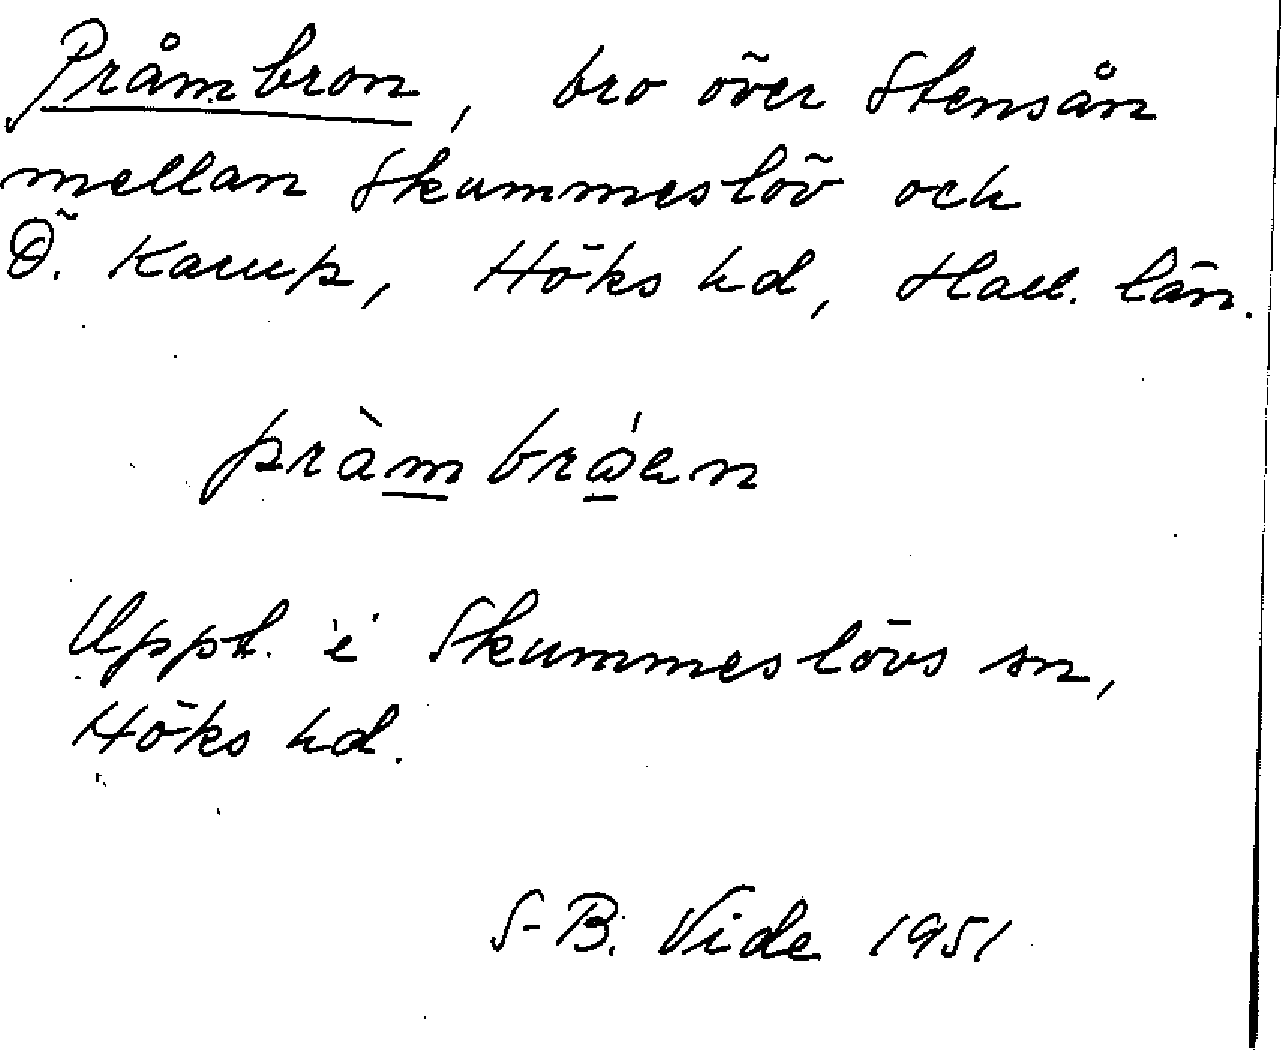 Pråmbron, bro över Stensån
mellan Skummeslöv och
Ö. Karup, Höks hd, Hall. län.
pràmbrǻen
Uppt. i Skummeslövs sn,
Höks hd.
S-B. Vide 1951